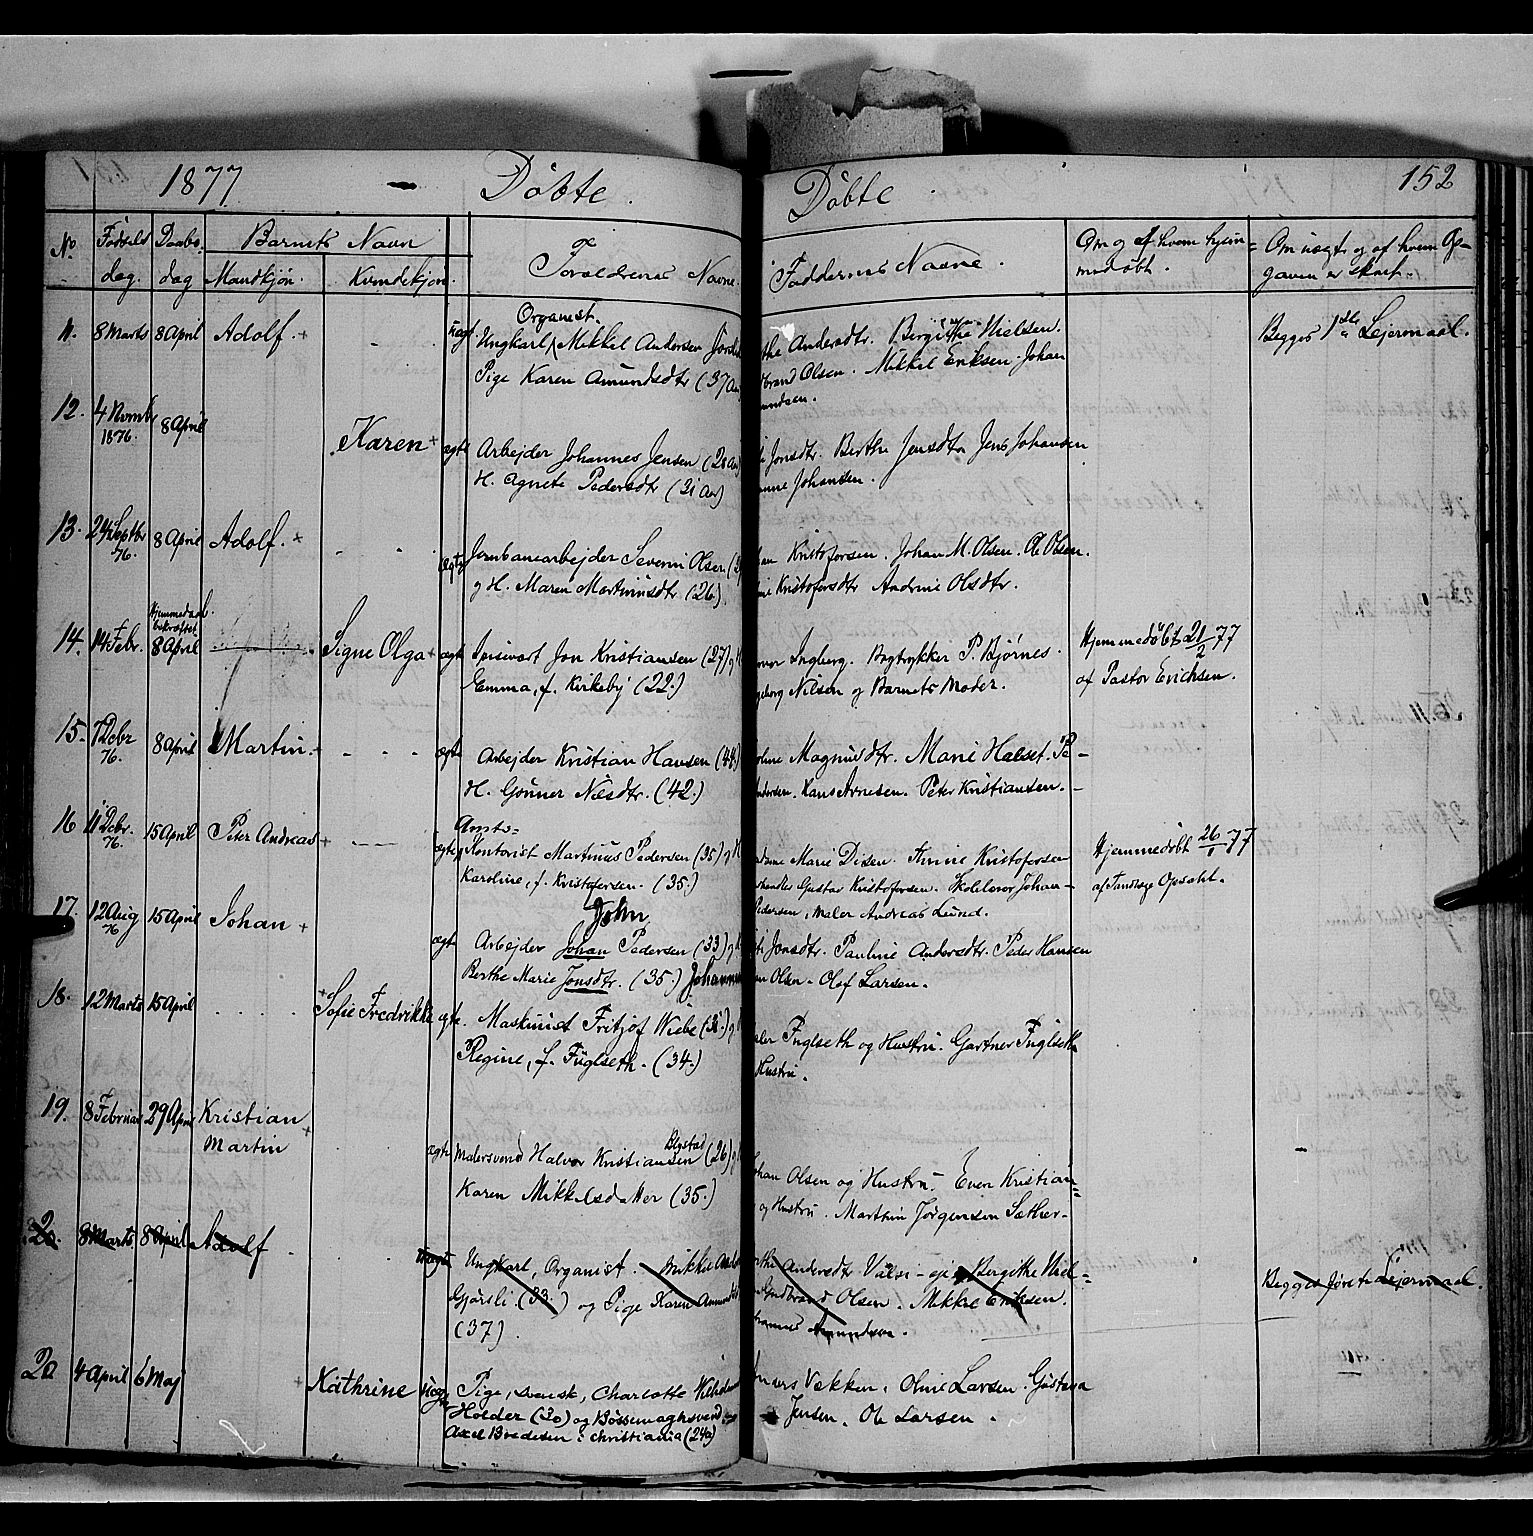 1877 Döbte.
Döbte 152
No. Födsels dag. Daabs dag Barnets Navn Mandkjön. Kvindekjön. Foraldrenes Navne.
Faddernes Navne. Om og af hvem hjem= medöbt. Om uægte og af hvem Op= gaven er skeet.
11. 8 Marts 8 April Adolf. uægt.
Organist.
Ungkarl Mikkel Andersen
Pige Karen Amundsdtr (37 Aar
Andersdtr. Bergithe Nielsen.
brand Olsen. Mikkel Eriksen. Johan
undsen.
Begges 1ste Lejermaal.
12. 4 Novmbr 1876. 8 April Karen ægte
Arbejder Johannes Jensen (28 Aar)
H. Agnete Pedersdtr (31 Aar)
Jonsdtr. Berthe Jensdtr Jens Johansen
Johansen.
13. 24 Septbr 76. 8 April Adolf. ægte
Jernbanearbejder Severin Olsen
og H. Maren Martinusdtr (26).
Kristofersen. Johan M. Olsen. Ole Olsen.
Kristofersdtr Andrine Olsdtr.
Hjemmedaab bekræftet
14. 14 Febr. 8 April Signe Olga ægte
Spisevært Jon Kristiansen (27) og
Emma, f. Kirkeby (22.)
Ingberg. Bogtrykker P. Bjørnes.
Nilsen og Barnets Moder.
Hjemmedöbt 21/2 77
af Pastor Erichsen.
15. 7 Debr 76. 8 April Martin. ægte
Arbejder Kristian Hansen (44)
H. Gunner Nilsdtr. (42.)
Magnusdtr. Marie Halset. Pe-
Andersen. Hans Arnesen. Peter Kristiansen.
16 11 Debr. 76. 15 April Peter Andreas ægte
Amts=
Kontorist Martinus Pedersen (35) og
Karoline, f. Kristofersen. (35.)
Marie Disen. Anine Kristofersen
Gustav Kristofersen. Skolelærer Johan-
Pedersen, Maler Andreas Lund.
Hjemmedöbt 26/1 77
af Tandlæge Opsahl.
17. 12 Aug 76 15 April Johan ægte
John
Arbejder Johan Pedersen (33) og
Berthe Marie Jonsdtr. (35.)
Jonsdtr. Pauline Andersdtr. Peder Hansen
Olsen. Olof Larsen.
18. 12 Marts 15 April Sofie Fredrikke ægte.
Maskinist Fritjof Wiebe
Regine, f. Fuglseth. (34.)
Fuglseth og Hustru. Gartner Fuglseth
Hustru.
19. 8 Februar 29 April Kristian Martin ægte
Blystad
Malersvend Halvor Kristiansen (26) og
Karen Mikkelsdatter (35.)
Johan Olsen og Hustru. Even Kristian=
og Hustru. Marthin Jørgensen Sæther-
20. 8 Marts 8 April Adolf uægte
Ungkarl, Organist. Mikkel
Gjørsli. (33.) og Pige Karen
(37).
Andersdtr Bergithe Niel=
Gudbrand Olsen. Mikkel Eriksen.
Amundsen.
Begges første Lejermaal.
20 4 April 6 Maj Kathrine uægte
Pige, svensk, Charlotte
Holder (30) og Bössemagersvend
Axel Bredesen i Christiania (24a)
Vækken. Oline Larsen. Gustava
Jensen. Ole Larsen.